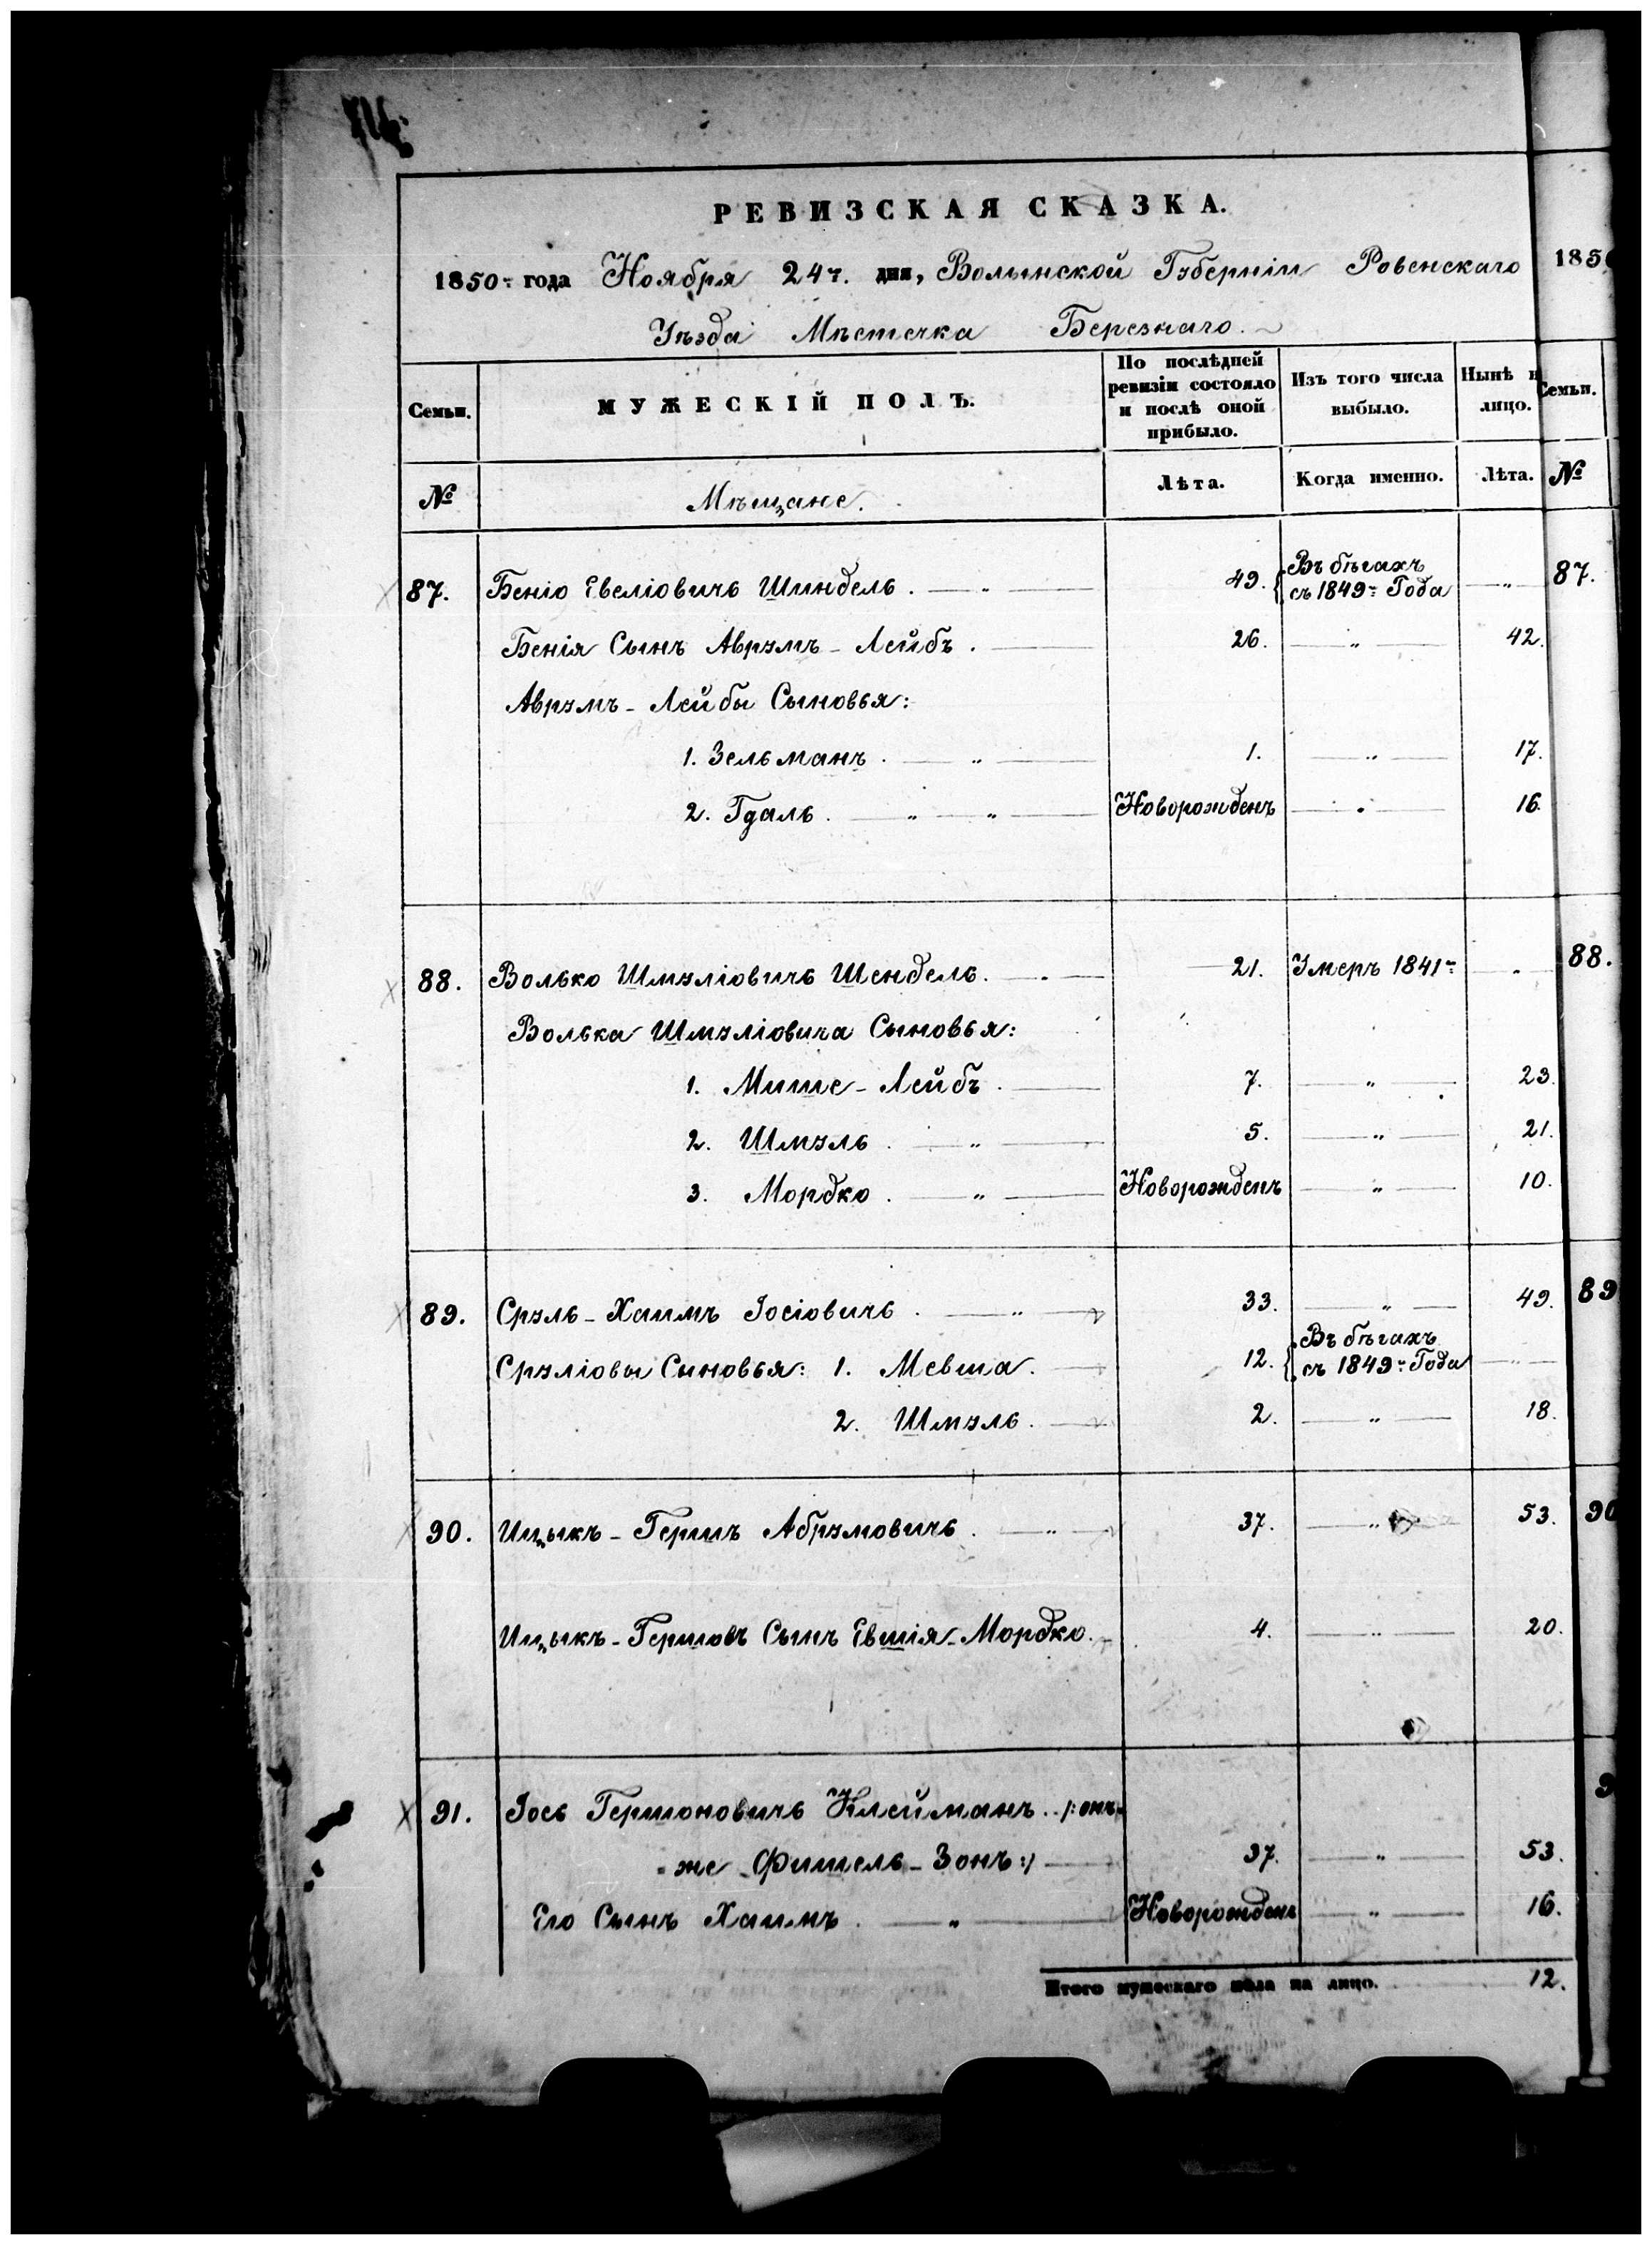 РЕВИЗСКАЯ СКАЗКА.
1850 года Ноября 24 дня, Волынской Губерніи Ровенскаго
Уѣзда Мѣстечка Березнаго.
Семьи.
МУЖЕСКІЙ ПОЛЪ.
По послѣдней ревизіи состояло и послѣ оной прибыло.
Изъ того числа выбыло.
Нынѣ н лицо.
№
Мѣщане.
Лѣта.
Когда именно.
Лѣта.
87. Беніо Евеліовичь Шиндель. — „ — 49. Въ бѣгахъ съ 1849 Года — „
Бенія Сынъ Аврумъ - Лейбъ. — 26. — „ — 42.
Аврумъ - Лейбы Сыновья:
1. Зельманъ. — „ — 1. — „ — 17.
2. Гдаль. — „ — „ — Новорожденъ — „ — 16.
88. Волько Шмуліовичь Шендель. — 21. Умеръ 1841 — „
Волька Шмуліовича Сыновья:
1. Мише - Лейбъ. — 7. — „ — 23.
2. Шмуль. — „ — 5. — „ — 21.
3. Мордко. — „ — Новорожденъ — „ — 10.
89. Сруль - Хаимъ Іосіовичь. — „ — 33. — „ — 49.
Среуліовы Сыновья: 1. Мевша. — 12. Въ бѣгахъ съ 1849 Года — „ —
2. Шмуль. — 2. — „ — 18.
90. Ицыкъ - Гершъ Абрумовичь. — „ — 37. — „ — 53.
Ицыкъ - Гершовъ Сынъ Евшія - Мордко. 4. — „ — 20.
91. Іось Гершоновичь Клейманъ. /: онъ
же Фишель - Зонъ :/ — 37. — „ — 53.
Его Сынъ Хаимъ. — „ — Новорожденъ — „ — 16.
Итого мужескаго пола на лицо. 12.
1850
Семьи.
№
87.
88.
89
90
9